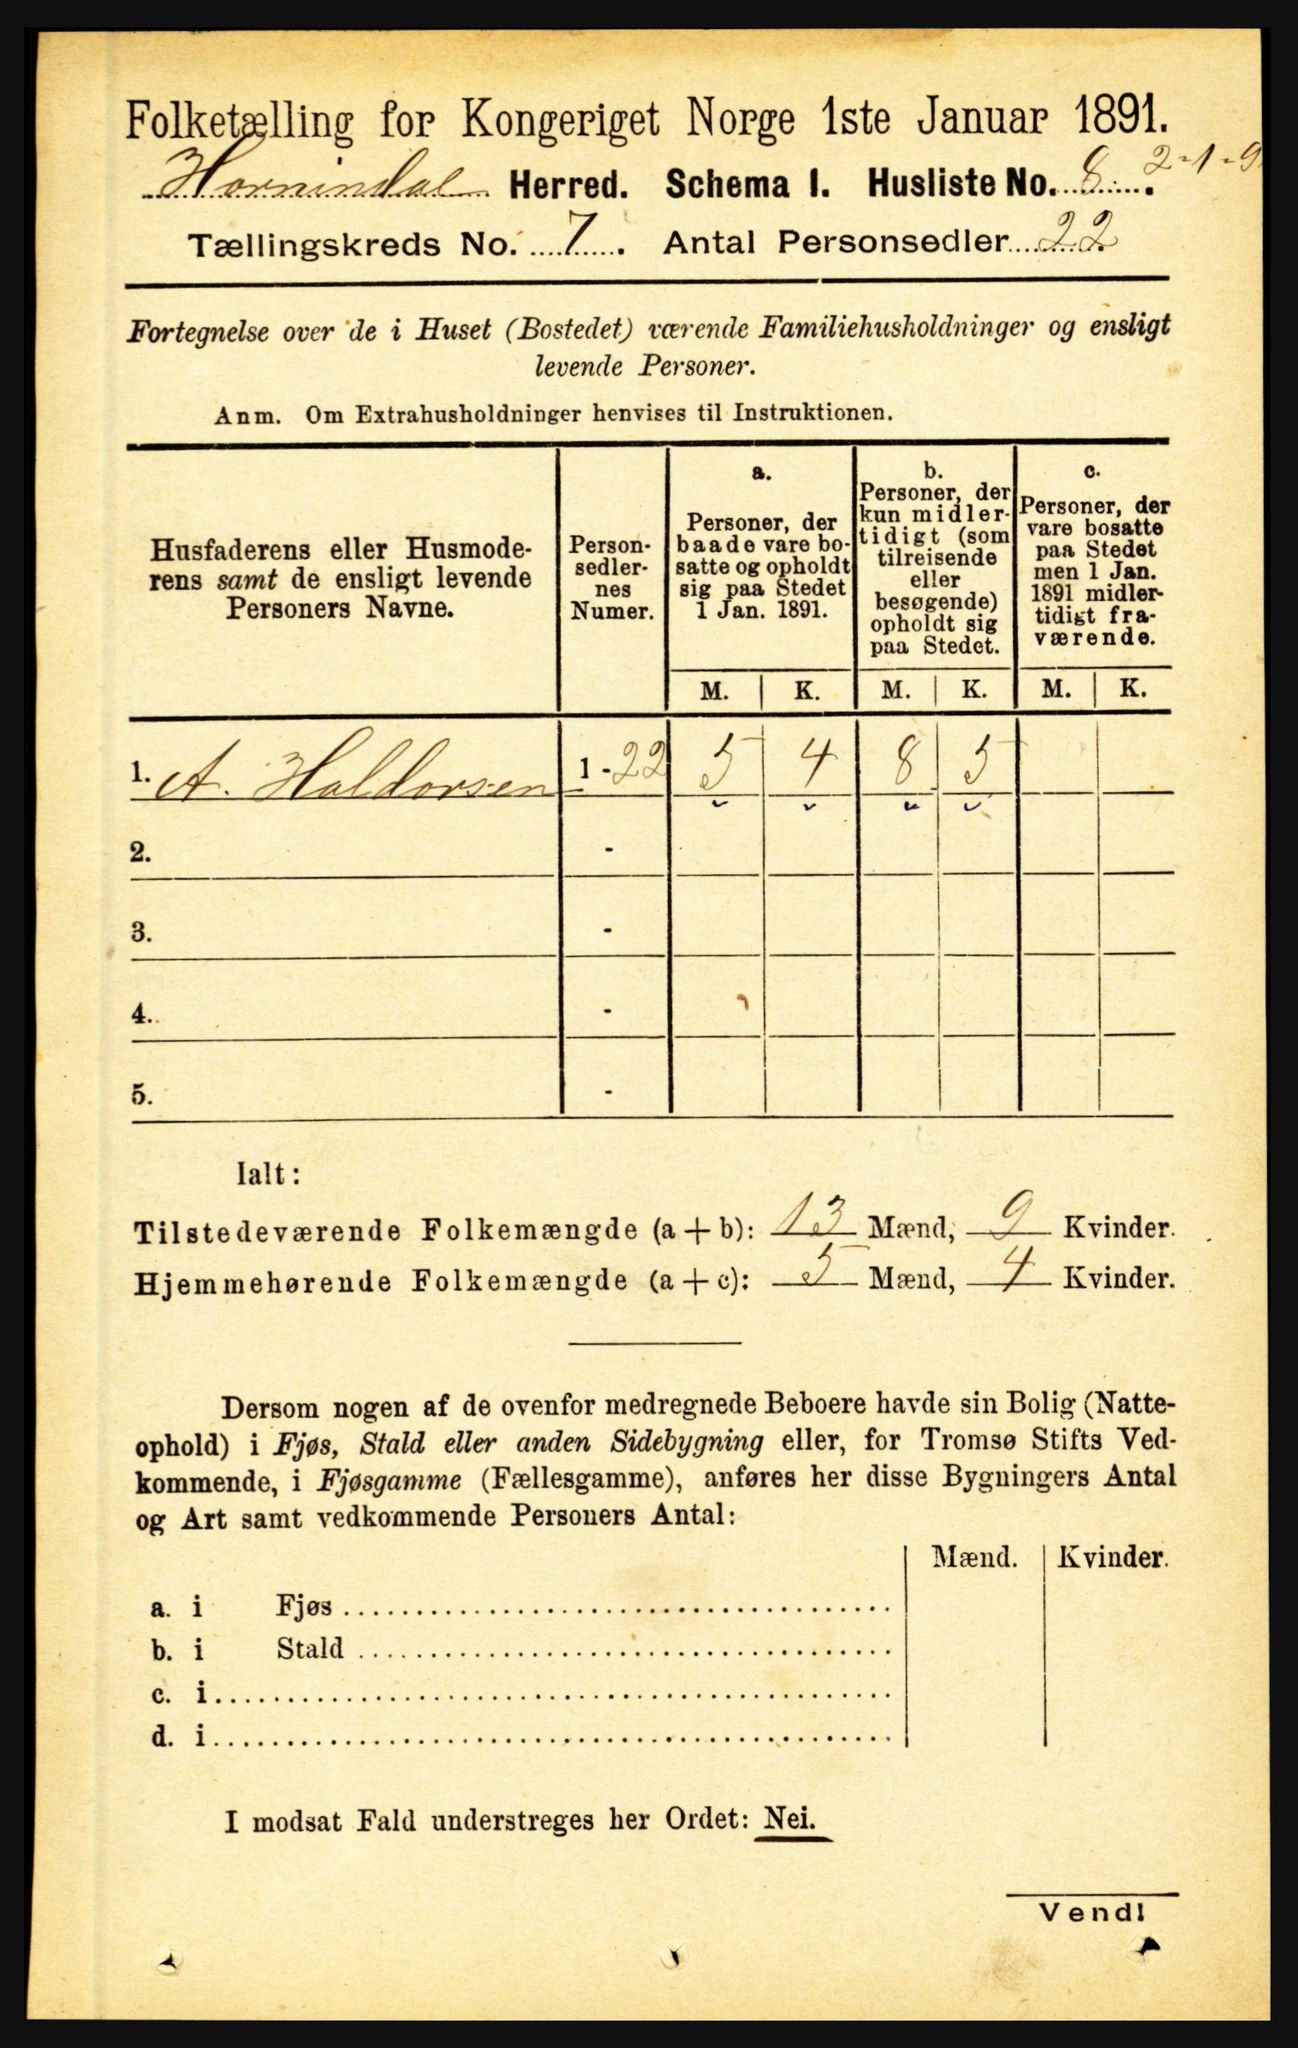 Folketælling for Kongeriget Norge 1ste Januar 1891.
Hornindal Herred. Schema I. Husliste No. 8. 2-1-9
Tællingskreds No. 7. Antal Personsedler 22.
Fortegnelse over de i Huset (Bostedet) værende Familiehusholdninger og ensligt
levende Personer.
Anm. Om Extrahusholdninger henvises til Instruktionen.
Husfaderens eller Husmode-
rens samt de ensligt levende
Personers Navne.
Person-
sedler-
nes
Numer.
a.
Personer, der
baade vare bo-
satte og opholdt
sig paa Stedet
1 Jan. 1891.
b.
Personer, der
kun midler-
tidigt (som
tilreisende
eller
besøgende)
opholdt sig
paa Stedet.
c.
Personer, der
vare bosatte
paa Stedet
men 1 Jan.
1891 midler-
tidigt fra-
værende.
M. K. M. K. M. K.
1. A. Haldorsen 1-22 5 4 8 5
2. -
3. -
4. -
5. -
Ialt:
Tilstedeværende Folkemængde (a + b): 13 Mænd, 9 Kvinder.
Hjemmehørende Folkemængde (a + c): 5 Mænd, 4 Kvinder.
Dersom nogen af de ovenfor medregnede Beboere havde sin Bolig (Natte-
ophold) i Fjøs, Stald eller anden Sidebygning eller, for Tromsø Stifts Ved-
kommende, i Fjøsgamme (Fællesgamme), anføres her disse Bygningers Antal
og Art samt vedkommende Personers Antal:
Mænd. Kvinder.
a. i Fjøs
b. i Stald
c. i
d. i
I modsat Fald understreges her Ordet: Nei.
Vend!